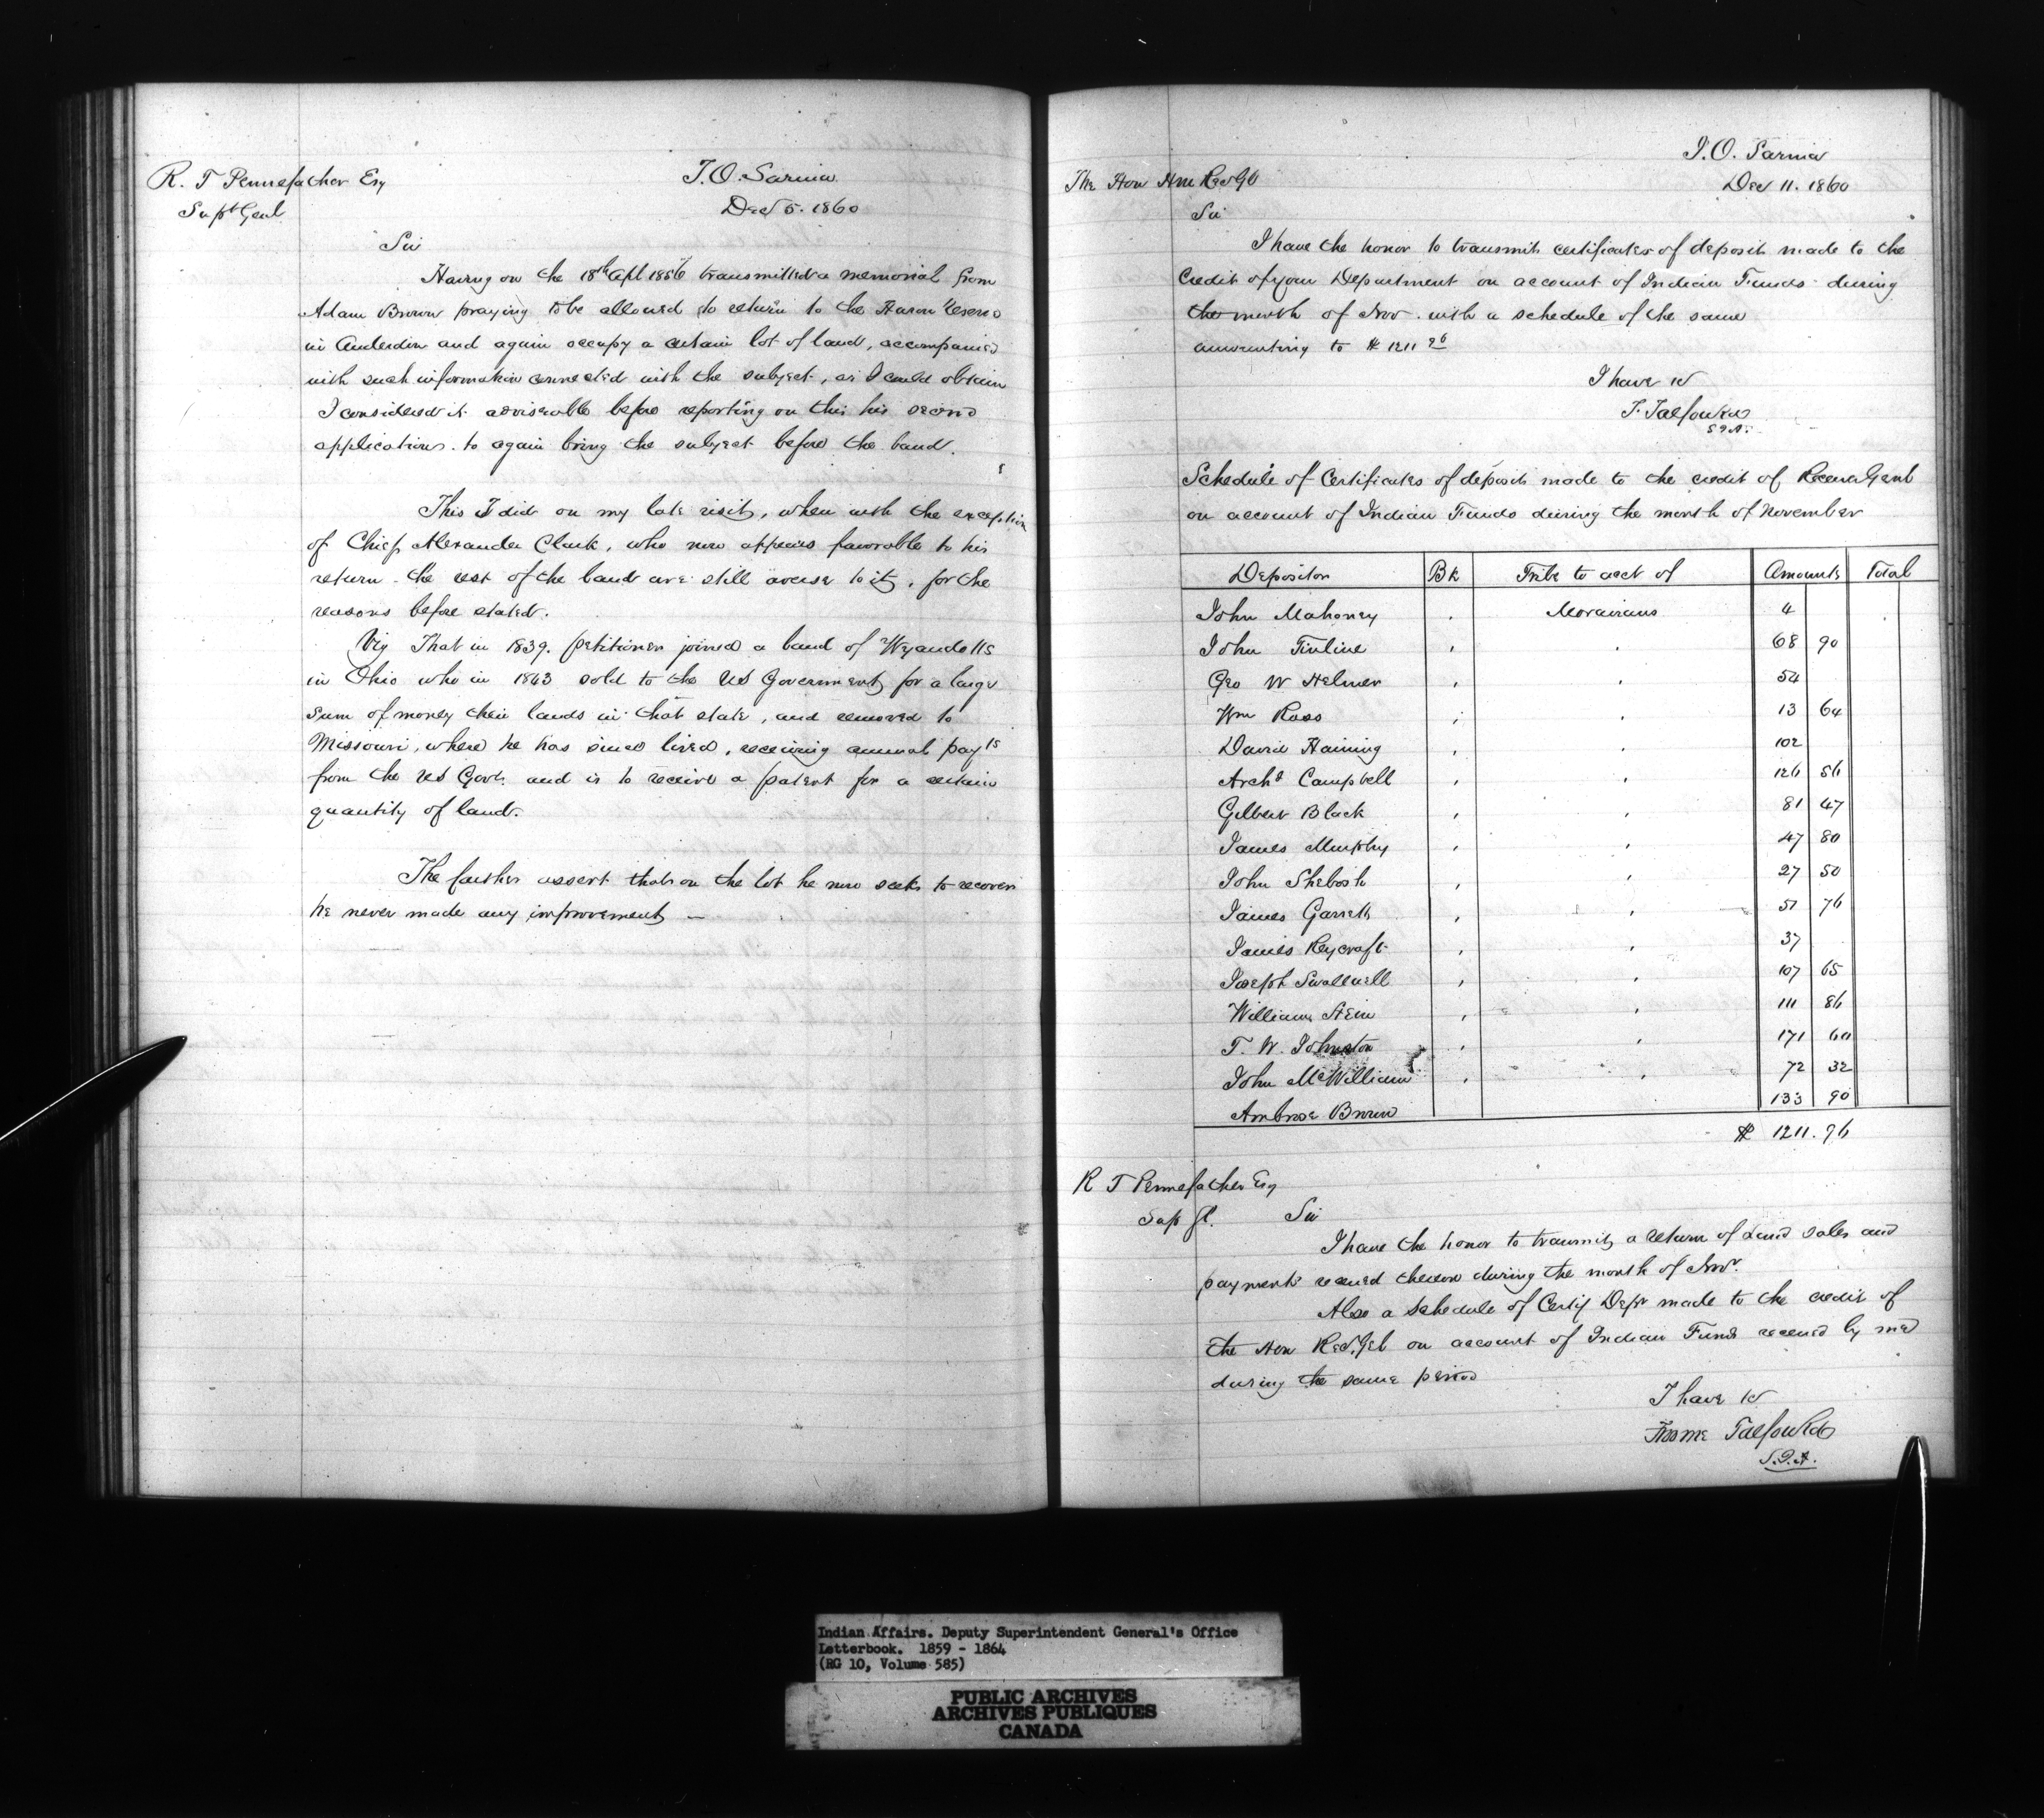 R. T Pennefather Esq
Supt Genl
I.O. Sarnia
Decr 5. 1860
Sir
Having on the 18th Apl 1856 transmitted a memorial from
Adam Brown praying to be allowed to return to the Huron Reserve
in Anderdon and again occupy a certain lot of land, accompanied
with such information connected with the subject, as I could obtain
I considered it adviseable before reporting on this his second
application. to again bring the subject before the band.
This I did on my late visit, when with the exception
of Chief Alexander Clark, who now appears favorable to his
return - the rest of the band are still averse to it, for the
reasons before stated.
Viz That in 1839. petitioner joined a band of Wyandotts
in Ohio who in 1843 sold to the US Government for a large
sum of money their lands in that state, and removed to
Missouri, where he has since lived, receiving annual payts
from the US Govt. and is to receive a patent for a certain
quantity of land.
The further assert that on the lot he now seeks to recover
he never made any improvement —
I.O. Sarnia
Decr 11. 1860
The Hon Hm Rec Gl
Sir
I have the honor to transmit certificates of deposit made to the
Credit of your Department on account of Indian Funds during
the month of Nov. with a schedule of the same
amounting to $ 1211 96
I have &c
F. Talfourd
S I A.
Schedule of Certificates of deposit made to the credit of Receiver Genl
on account of Indian Funds during the month of November
Depositor Bk Tribe to acct of Amounts Total
John Mahoney , Moravians 4
John Tinline , , 68 90
Geo W Helmer , , 54
Wm Ross , , 13 64
David Haining , , 102
Archd Campbell , , 126 56
Gilbert Black , , 81 47
James Murphy , , 47 80
John Shebosh , , 27 50
James Garrett , , 51 76
James Reycraft , , 37
Joseph Swallwell , , 107 65
William Stein , , 111 86
T. W. Johnston , , 171 60
John McWilliam , , 72 32
Ambrose Brown 133 90
$ 1211.96
R T Pennefather Esq
Sup Gl. Sir
I have the honor to transmit a return of Land sales and
payments received thereon during the month of Novr.
Also a Schedule of Certif Depr made to the credit of
the Hon Rec. Gel on account of Indian Funds received by me
during the same period
I have &c
Froome Talfourd
S.I.A.
Indian Affairs. Deputy Superintendent General's Office
Letterbook. 1859 - 1864
(RG 10, Volume 585)
PUBLIC ARCHIVES
ARCHIVES PUBLIQUES
CANADA